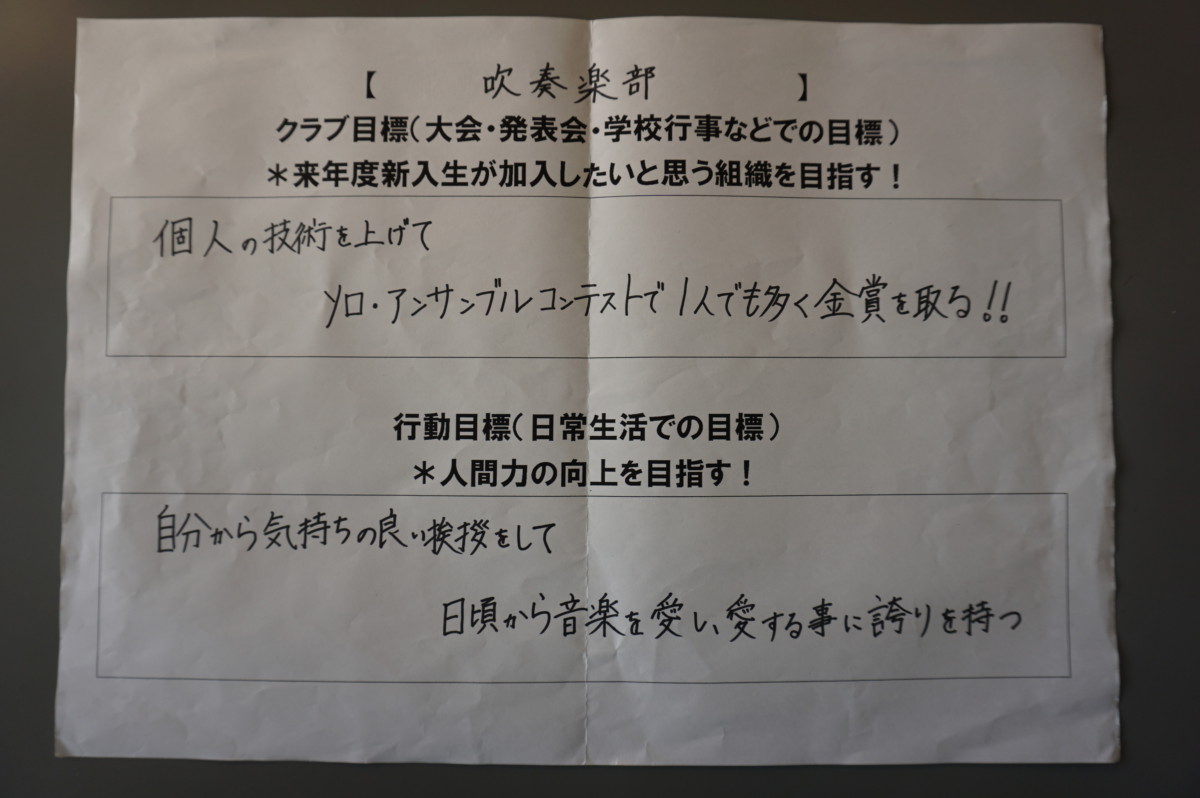 【 吹奏楽部 】
クラブ目標(大会・発表会・学校行事などでの目標)
*来年度新入生が加入したいと思う組織を目指す!
個人の技術を上げて
ソロ・アンサンブルコンテストで1人でも多く金賞を取る!!
行動目標(日常生活での目標)
*人間力の向上を目指す!
自分から気持ちの良い挨拶をして
日頃から音楽を愛し、愛する事に誇りを持つ